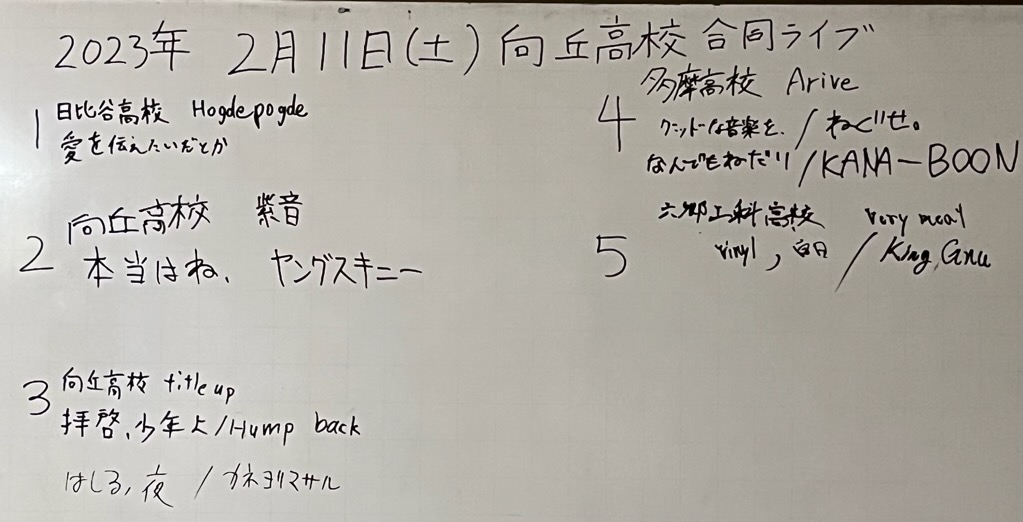 2023年 2月11日(土) 向丘高校 合同ライブ
1 日比谷高校 Hogdepogde
愛を伝えたいだとか
2 向丘高校 紫音
本当はね、 ヤングスキニー
3 向丘高校 title up
拝啓、少年よ/Hump back
はしる、夜 / カネヨリマサル
4 多摩高校 Arive
グッドな音楽を、/ねぐせ。
なんでもねだり/KANA-BOON
5 六郷工科高校 very meal
vinyl, 白日 / King Gnu